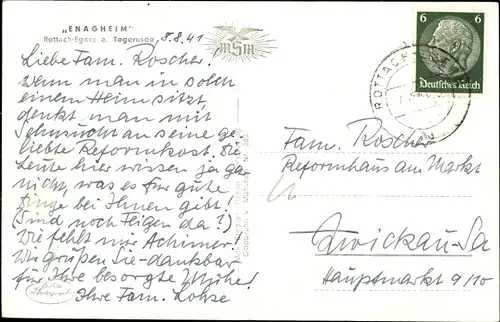 „ENAGHEIM"
Rottach-Egern a. Tegernsee
8.8.41
MSM
Liebe Fam. Roscher,
wenn man in solch
einem Heim sitzt,
denkt man mit
Sehnsucht an seine ge-
liebte Reformkost. Die
Leute hier wissen ja gar
nicht, was es für gute
Dinge bei Ihnen gibt!
(Sind noch Feigen da?)
Wie fehlt mir Achimer!
Wir grüßen Sie dankbar
für Ihre besorgte Mühe!
Ihre Fam. Lohse
6 6
Deutsches Reich
ROTTACH
Fam. Roscher
Reformhaus am Markt
Zwickau-Sa
Hauptmarkt 9/10